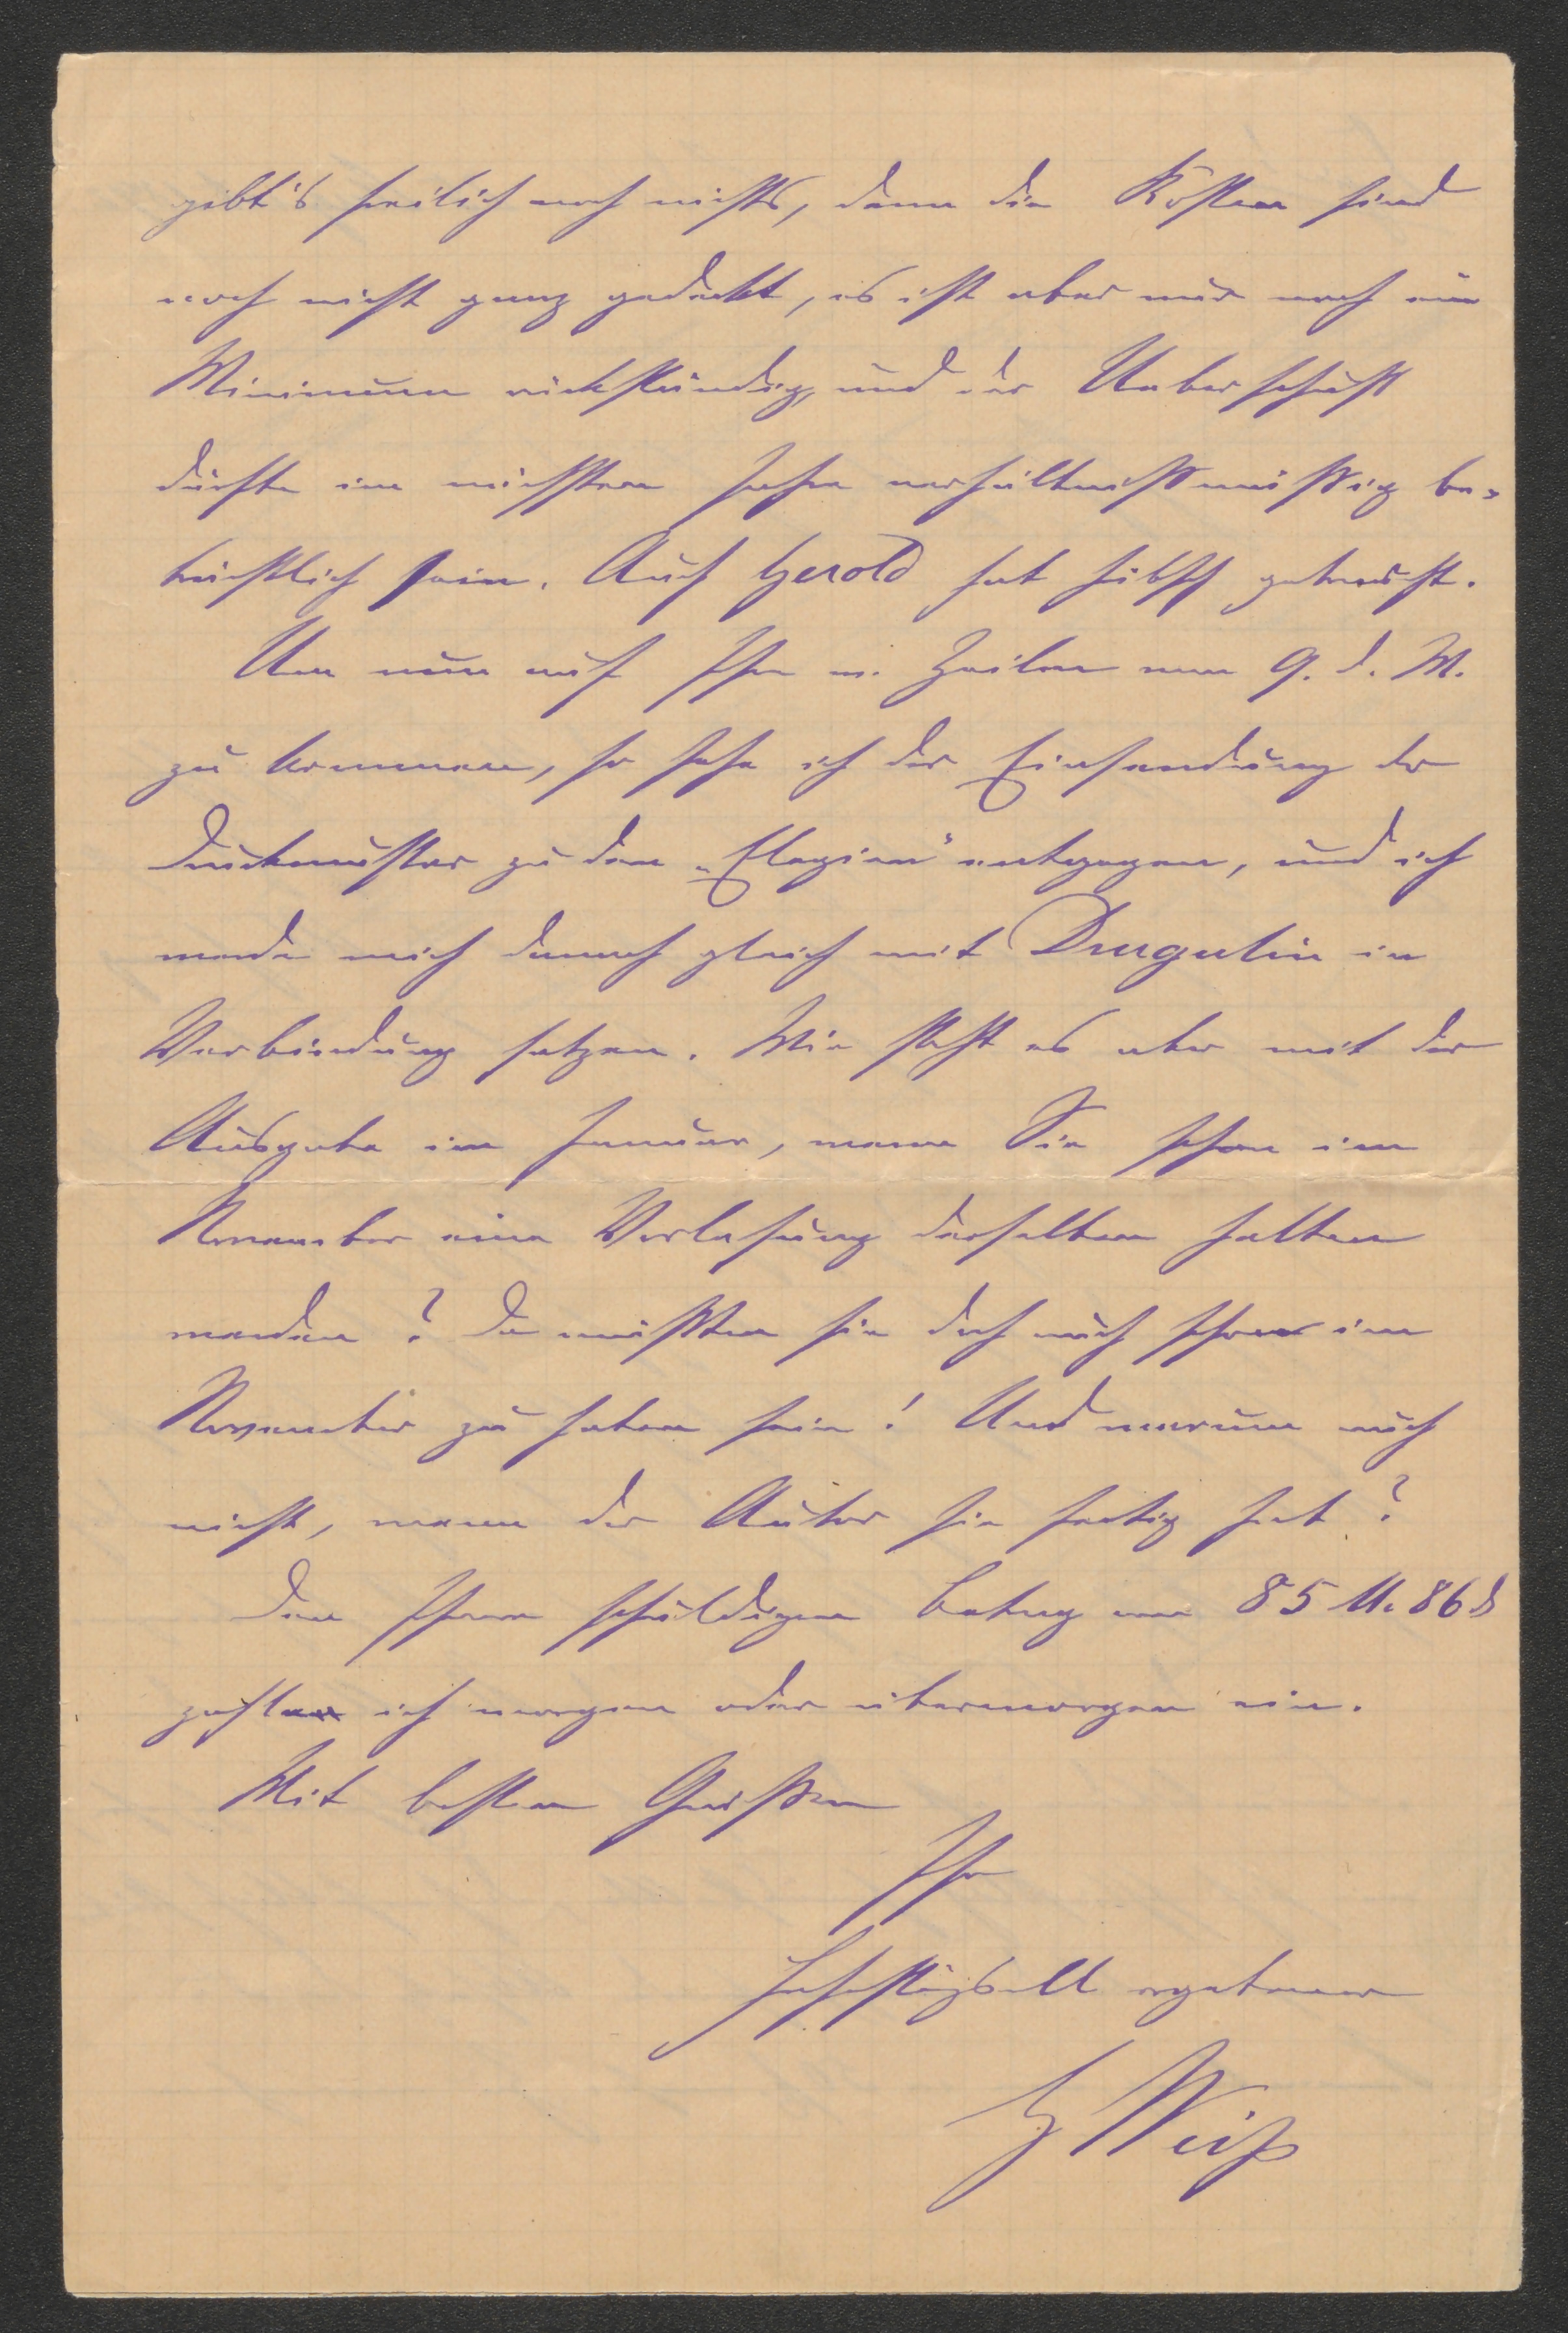 gibt's freilich noch nichts, denn die Kosten sind
noch nicht ganz gedeckt, es ist aber nur noch ein
Minimum rückständig, und der Ueberschuß
dürfte im nächsten Jahre verhältnißmäßig be-
trächtlich sein. Auch Gerold hat hübsch gebraucht.
Um nun auf Ihre w. Zeilen vom 9. d. M.
zu kommen, so sehe ich der Einsendung der
Druckmuster zu den „Elegien" entgegen, und ich
werde mich danach gleich mit Drugulin in
Verbindung setzen. Wie steht es aber mit der
Ausgabe im Januar, wenn Sie schon im
November eine Vorlesung derselben halten
werden? Da müßten sie doch auch schon im
November zu haben sein! Und warum auch
nicht, wenn der Autor sie fertig hat?
Den Ihnen schuldigen Betrag von 85 M. 86 ₰
zahle ich morgen oder übermorgen ein.
Mit besten Grüßen
Ihr
hochachtungsvoll ergebener
Weiß